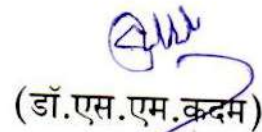 (डॉ.एस.एम.कदम)